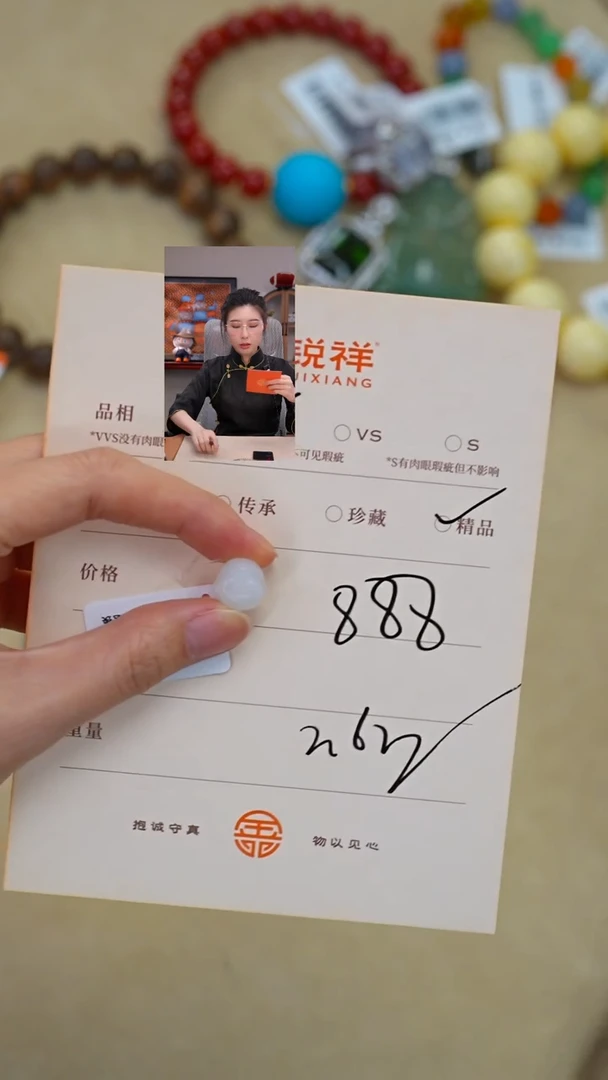 锐祥
UIXIANG
品相
VS
S
*VVS没有肉眼
可见瑕疵
*S有肉眼瑕疵但不影响
传承
珍藏
精品
价格
888
重量
抱诚守真
物以见心